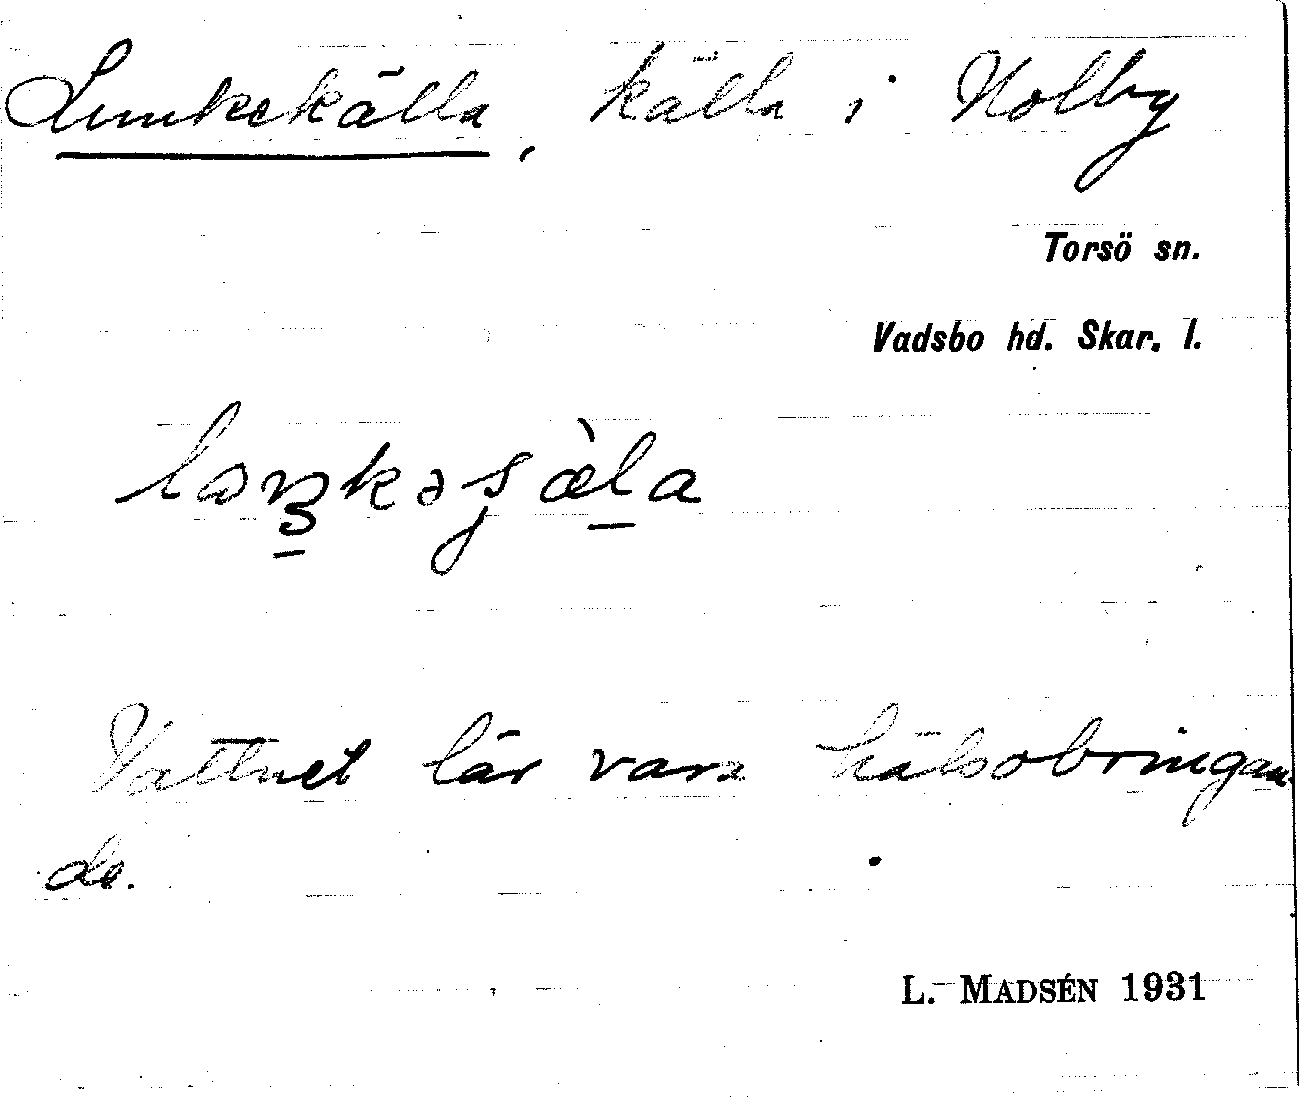 Lunkekälla, källa i Nolby
Torsö sn.
Vadsbo hd. Skar. l.
Vattnet lär vara hälsobringan-
de.
L. MADSÉN 1931